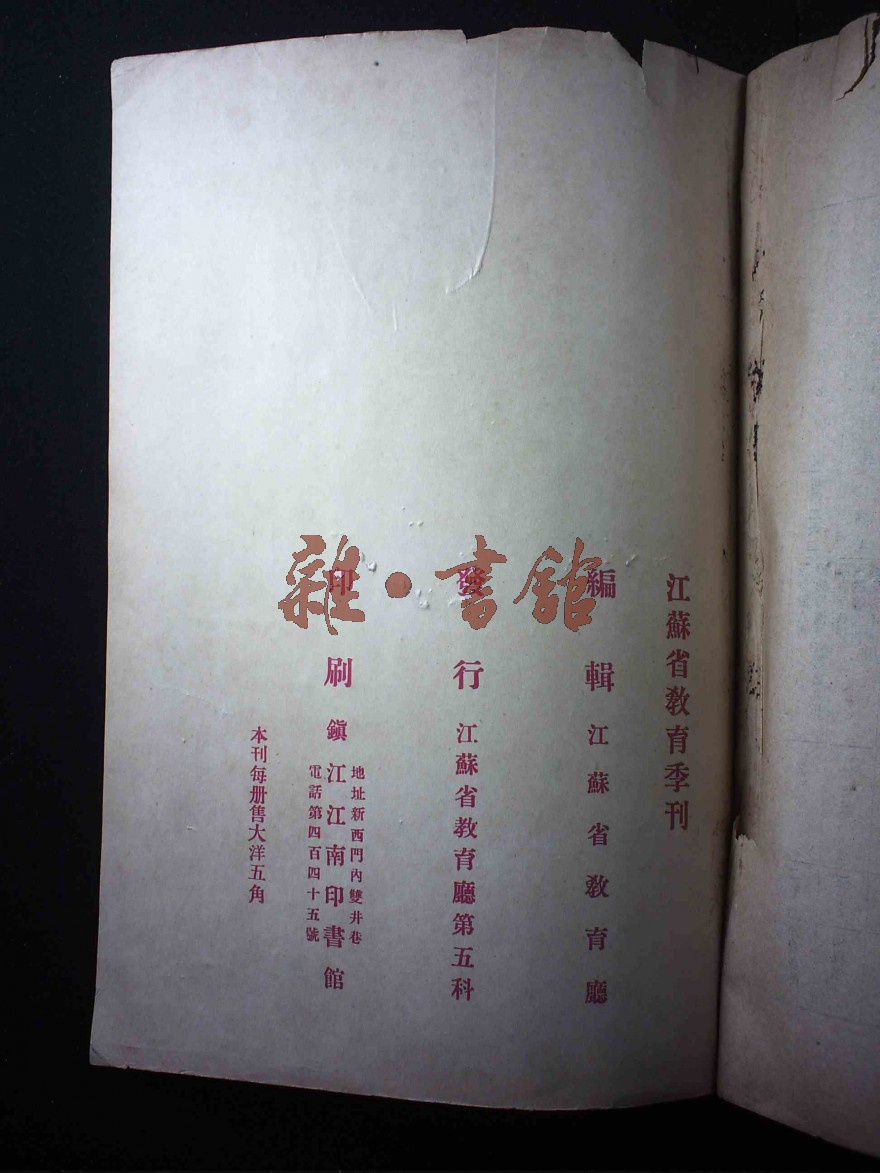 江蘇省敎育季刊
編輯 江蘇省敎育廳
發行 江蘇省教育廳第五科
地址新西門內雙井巷
印刷 鎭江江南印書館
電話第四百四十五號
本刊每册售大洋五角
雜·書館